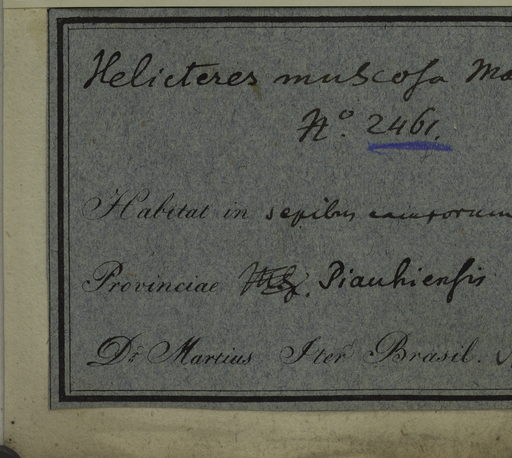 Helicteres muscosa
No. 2461.
Habitat in sepibus camporum
Provinciae Piauhiensis
Dr. Martius Iter Brasil.